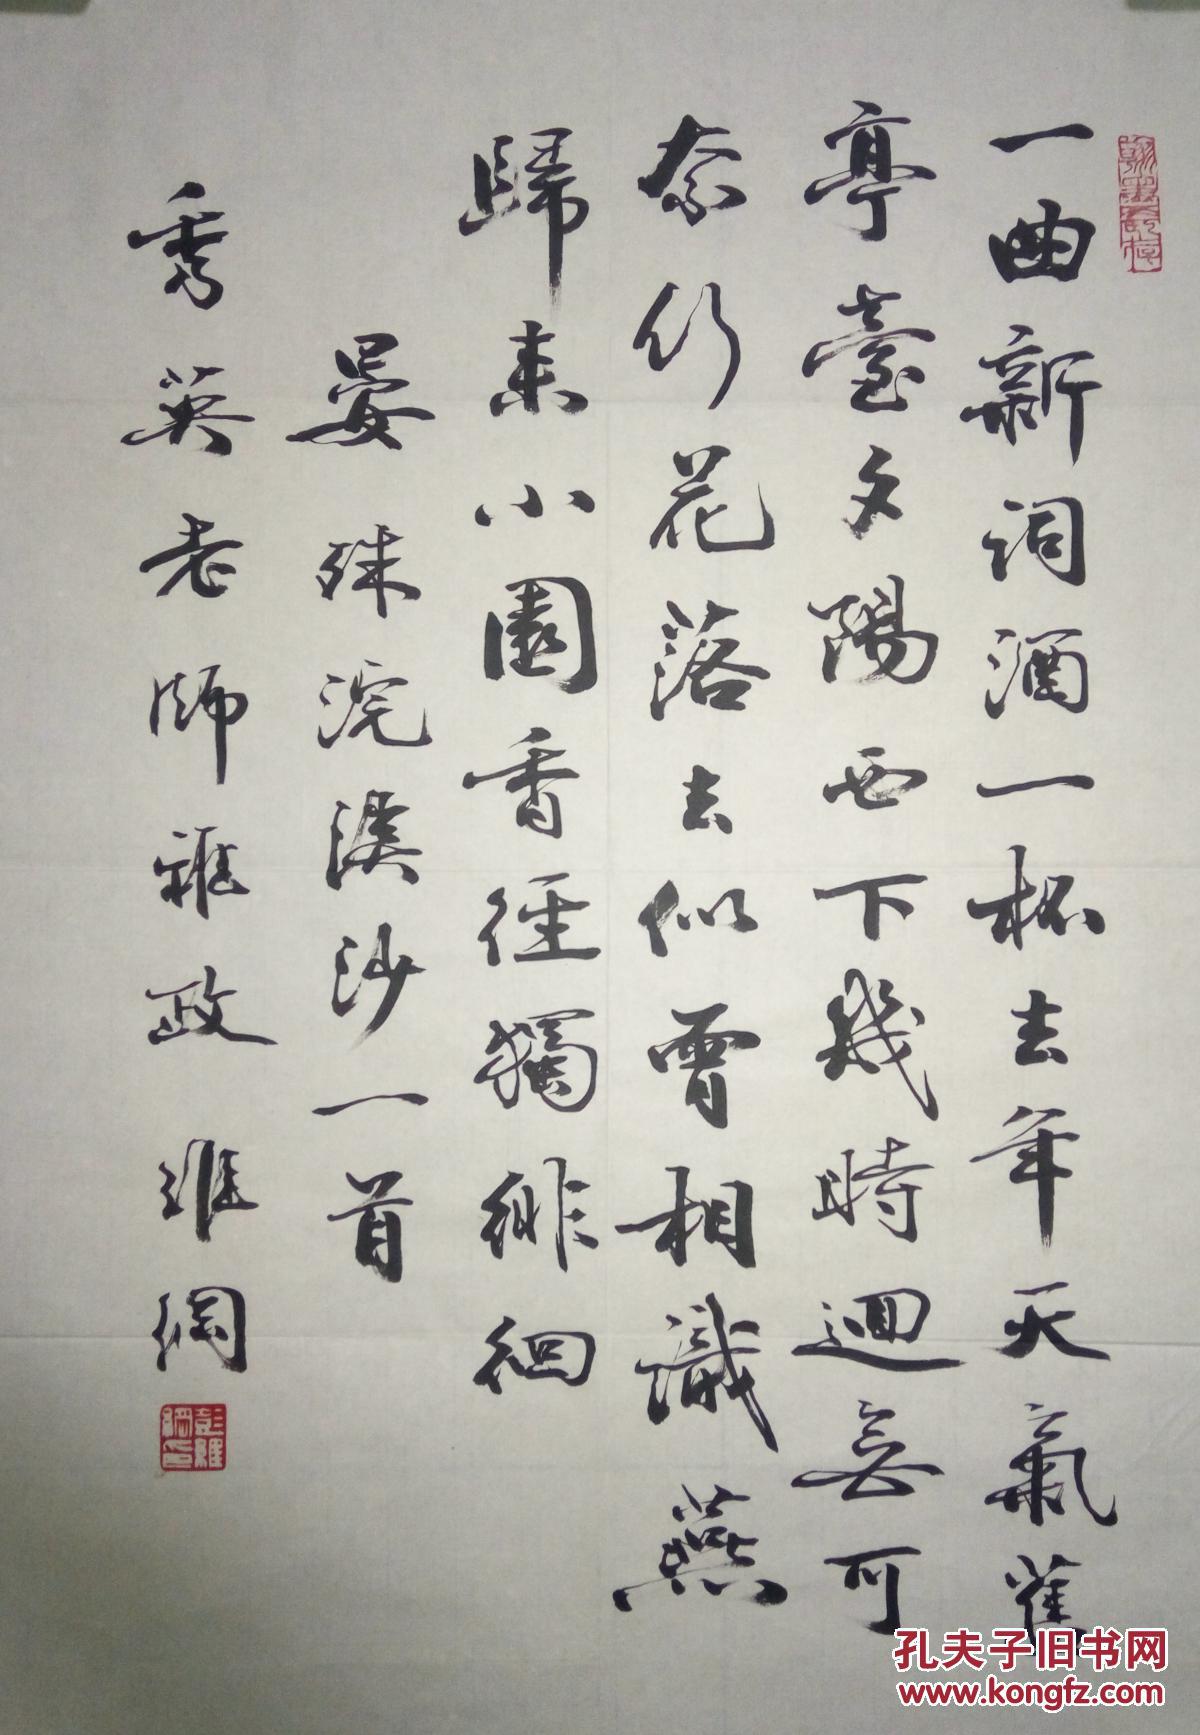 翰墨長存
一曲新詞酒一杯去年天氣舊
亭臺夕陽西下幾時迴無可
奈何花落去似曾相識燕
歸来小園香徑獨徘徊
晏殊浣溪沙一首
秀英老師雅政 維綱
彭維綱印
孔夫子旧书网
www.kongfz.com